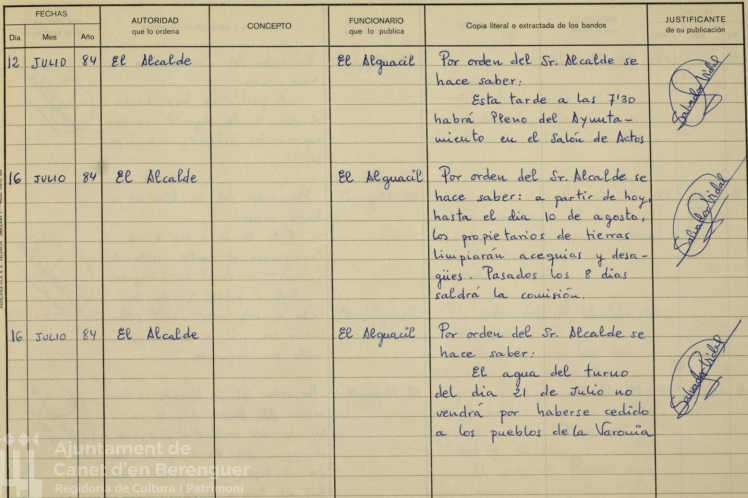 FECHAS
AUTORIDAD
que lo ordena
CONCEPTO
FUNCIONARIO
que lo publica
Copia literal o extractada de los bandos
JUSTIFICANTE
de su publicación
Dia Mes Año
12 JULIO 84 El Alcalde El Alguacil Por orden del Sr. Alcalde se
hace saber:
Esta tarde a las 7'30
habrá Pleno del Ayunta-
miento en el Salón de Actos
Salvador Vidal
16 JULIO 84 El Alcalde El Alguacil Por orden del Sr. Alcalde se
hace saber: a partir de hoy,
hasta el dia 10 de agosto,
los propietarios de tierras
limpiarán acequias y desa-
gües. Pasados los 8 dias
saldrá la comisión.
Salvador Vidal
16 JULIO 84 El Alcalde El Alguacil Por orden del Sr. Alcalde se
hace saber:
El agua del turno
del dia 21 de Julio no
vendrá por haberse cedido
a los pueblos de la Varonia
Salvador Vidal
Ajuntament de
Canet d'en Berenguer
Regidoria de Cultura i Patrimoni